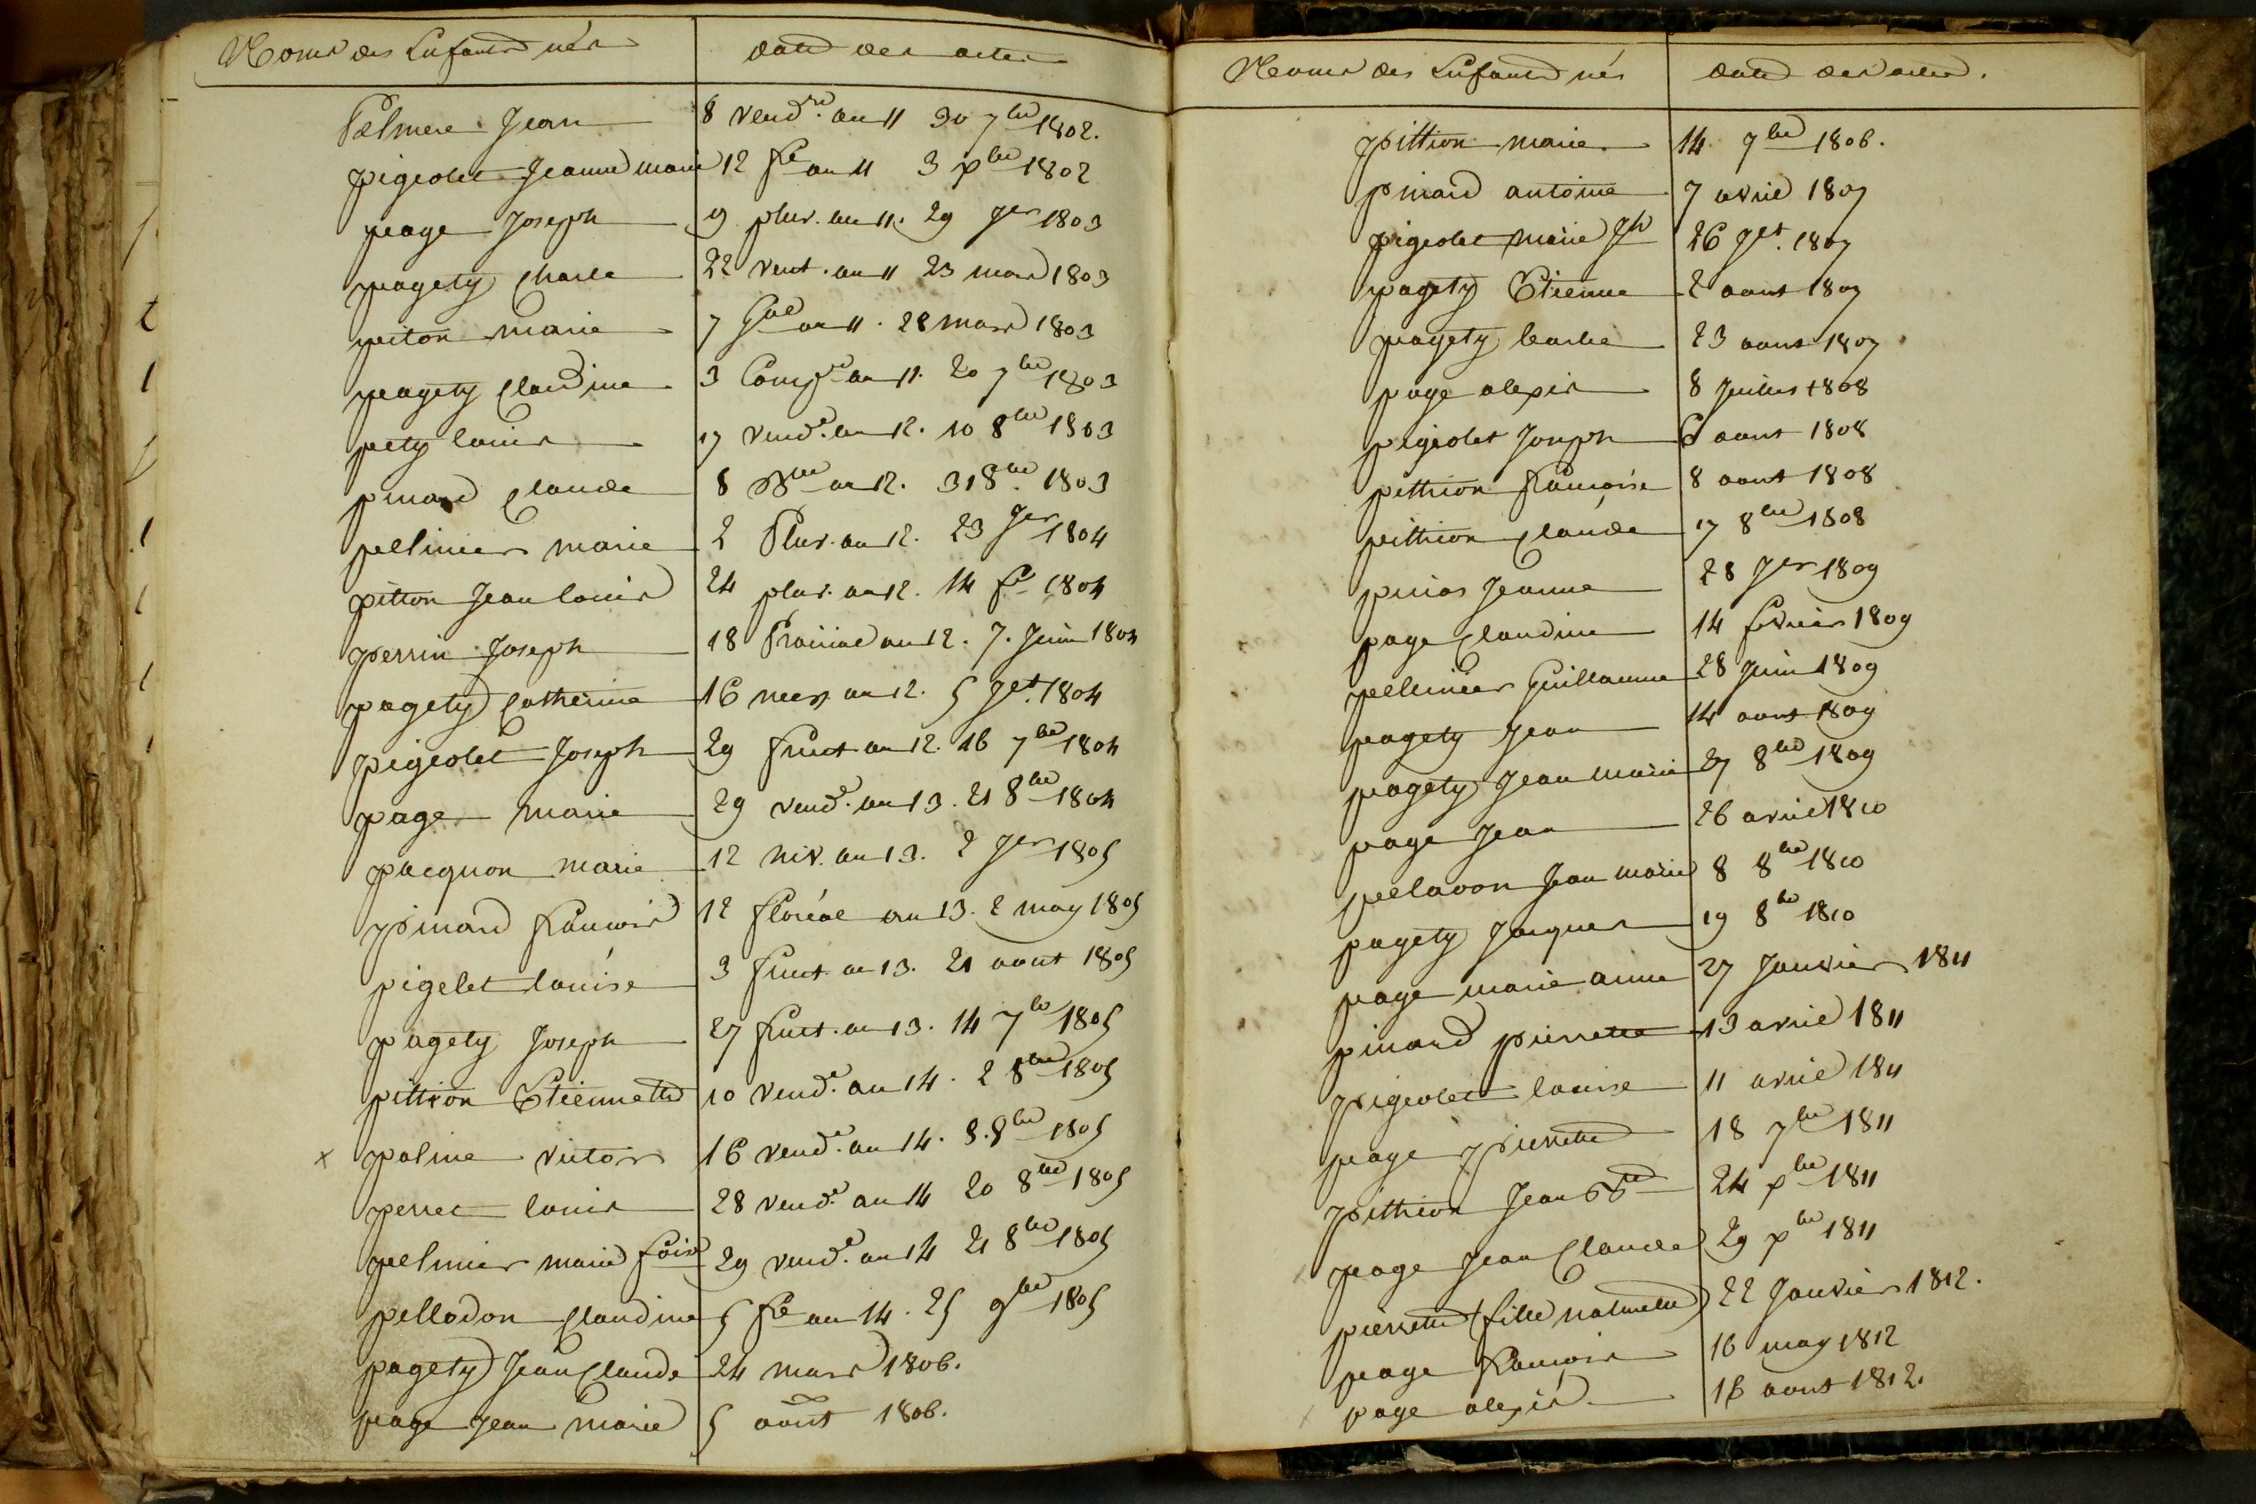 Noms des Enfants nés date des actes
Pelmere Jean 8 vend.re an 11 30 7bre 1802.
pigeolet Jeanne marie 12 fre an 11 3 xbre 1802
page Joseph 9 pluv. an 11. 29 Jer 1803
pagety Charle 22 vent. an 11 23 mars 1803
piton marie 7 Gal an 11. 28 mars 1803
pagety Claudine 3 Compre an 11. 20 7bre 1803
pety louis 17 vend.e an 12. 10 8bre 1803
pinard Claude 8 Bre an 12. 31 8bre 1803
pelinier marie 2 Pluv. an 12. 23 Jer 1804
pitton Jean louis 24 pluv. an 12. 14 fr 1804
perrin Joseph 18 Prairial an 12. 7. Juin 1804
pagety Catherine 16 mess an 12. 5 Jet. 1804
pigeolet Joseph 29 fruct an 12. 16 7bre 1804
page marie 29 vend.e an 13. 21 8bre 1804
pacquon marie 12 niv. an 13. 2 Jer 1805
pinard francois 12 floréal an 13. 2 may 1805
pigelet louise 3 fruct. an 13. 21 aout 1805
pagety Joseph 27 fruct. an 13. 14 7bre 1805
pittion Etiennette 10 vend.e an 14. 2 8bre 1805
x palme victor 16 vend.e an 14. 8. 8bre 1805
perret louis 28 vend.e an 14 20 8bre 1805
pelmier marie fcoise 29 vend.e an 14 21 8bre 1805
pellodon Claudine 5 fre an 14. 25 9bre 1805
pagety Jean Claude 24 mars 1806.
page Jean marie 5 août 1806.
Noms des Enfants nés date des actes.
pittion marie 14 7bre 1806.
pinard antoine 7 avril 1807
pigeolet marie Jh 26 Jet. 1807
pagety Etienne 2 aout 1807
pagety barbe 23 aout 1807
page alexis 8 Juillet 1808
pigeolet Joseph 6 aout 1808
pithion francoise 8 aout 1808
pithion Claude 17 8bre 1808
Jeanne 28 Jer 1809
page Claudine 14 fevrier 1809
pellinier Guillaume 28 Juin 1809
pagety Jean 14 aout 1809
pagety Jean marie 27 8bre 1809
page Jean 26 avril 1810
pelavon Jean marie 8 8bre 1810
pagety Jacques 19 8bre 1810
page marie anne 27 Janvier 1811
pinard pierrette 13 avril 1811
pigeolet louise 11 avril 1811
page pierrette 18 7bre 1811
pithion Jean Bte 24 xbre 1811
page Jean Claude 29 xbre 1811
pierrette (fille naturelle) 22 Janvier 1812.
page francois 16 may 1812
page alexis 16 aout 1812.